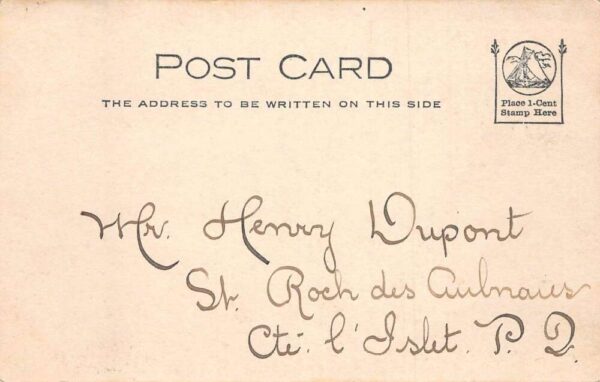 POST CARD
THE ADDRESS TO BE WRITTEN ON THIS SIDE
Place 1-Cent
Stamp Here
Mr. Henry Dupont
St. Roch des Aulnaies
Cté. l'Islet. P. Q.